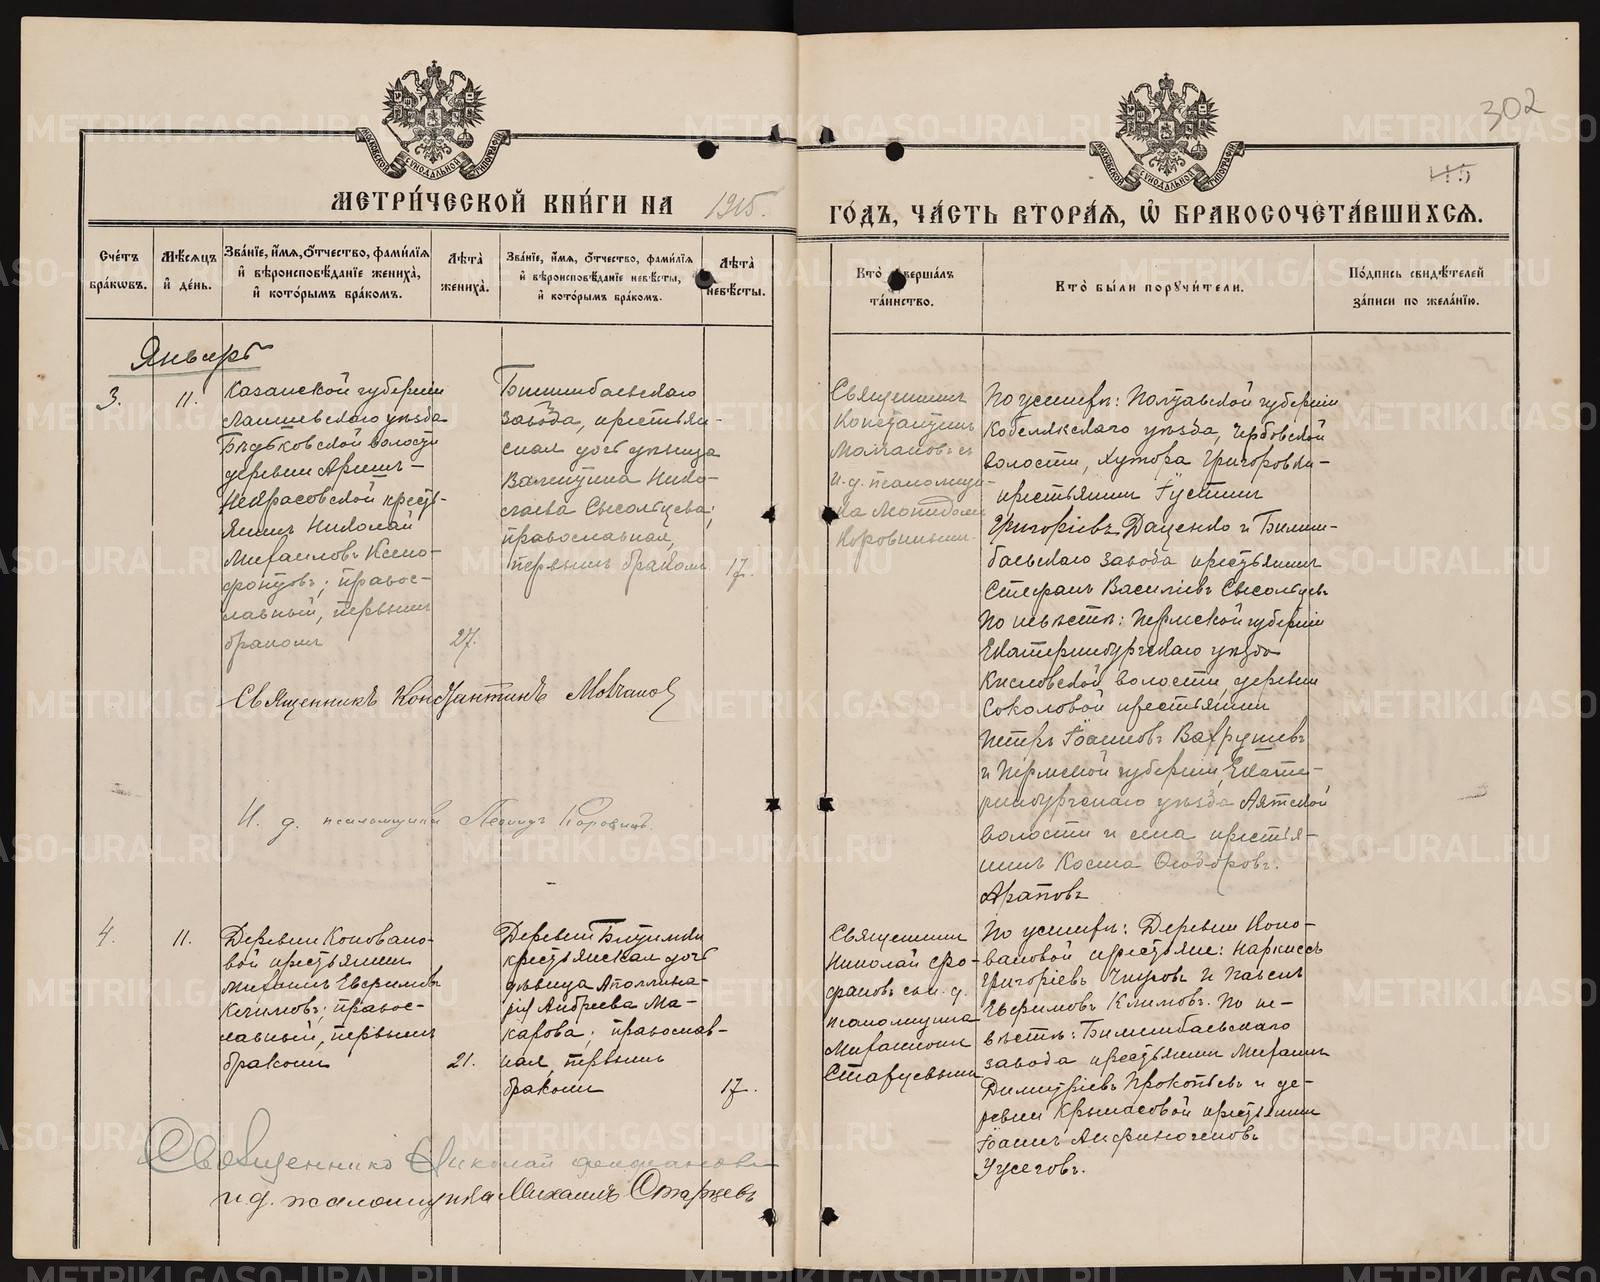 302
115
МОСКОВСКОЙ СѴНОДАЛЬНОЙ ТИПОГРАФІИ
МОСКОВСКОЙ СѴНОДАЛЬНОЙ ТИПОГРАФІИ
МЕТРИ́ЧЕСКОЙ КНИ́ГИ НА 1915.
ГО́ДЪ, ЧА́СТЬ ВТОРА́Ѧ, Ѡ҆ БРАКОСОЧЕТА́ВШИХСѦ.
Сче́тъ
бра́кѡвъ.
Мѣ́сѧцъ
и҆ де́нь.
Зва́нїе, и҆́мѧ, о҆́тчество, фами́лїѧ
и҆ вѣроисповѣ́данїе жениха̀,
и҆ кото́рымъ бра́комъ.
Лѣ́та
жениха̀.
Зва́нїе, и҆́мѧ, о҆́тчество, фами́лїѧ
и҆ вѣроисповѣ́данїе невѣ́сты,
и҆ кото́рымъ бра́комъ.
Лѣ́та
невѣ́сты.
Кто̀ соверша́лъ
та́инство.
Кто̀ бы́ли порꙋчи́тели.
По́дпись свидѣ́телей
за́писи по жела́нїю.
Январь
3.
11.
Казанской губерніи
Лаишевскаго уѣзда
волости
деревни
Некрасовской кресть-
янинъ Николай
Михаиловъ Ксено-
фонтовъ; правос-
лавный, первымъ
бракомъ
27.
Билимбаевскаго
завода, крестьян-
ская дочь дѣвица
Валентина Нико-
лаева Сысольцева;
православная,
первымъ бракомъ
17.
Священникъ
Константинъ
Молчановъ съ
и. д. псаломщи-
ка Леонидомъ
Коровинымъ.
По женихѣ: Полтавской губерніи
Кобелякскаго уѣзда,
волости, хутора Григоровки-
крестьянинъ Іустинъ
Григоріевъ Даценко и Билим-
баевскаго завода крестьянинъ
Стефанъ Василіевъ Сысольцевъ
По невѣстѣ: Пермской губерніи
Екатеринбургскаго уѣзда
Кисловской волости, деревни
Соколовой крестьянинъ
Петръ Іоанновъ Вахрушевъ
и Пермской губерніи, Екате-
ринбургскаго уѣзда Аятской
волости и села крестья-
нинъ Косма Ѳеодоровъ
Араповъ
Священникъ Константинъ Молчановъ
И. д. псаломщика Леонидъ Коровинъ.
4.
11.
Деревни Коновало-
вой крестьянинъ
Михаилъ Евфимовъ
Климовъ; правос-
лавный, первымъ
бракомъ
21.
Деревни Битимки
крестьянская дочь
дѣвица Аполлина-
рія Андреева Ма-
карова; православ-
ная, первымъ
бракомъ
17.
Священникъ
Николай Ѳео-
фановъ съ и. д.
псаломщика
Михаиломъ
Старцевымъ
По женихѣ: Деревни Коно-
валовой крестьяне: Наркиссъ
Григоріевъ и Павелъ
Евфимовъ Климовъ. По не-
вѣстѣ: Билимбаевскаго
завода крестьянинъ Михаилъ
Димитріевъ Прокопьевъ и де-
ревни Крыласовой крестьянинъ
Іоаннъ Анфиногеновъ
Чусеговъ.
Священникъ Николай Ѳеофановъ
и д. псаломщика Михаилъ Старцевъ
METRIKI.GASO-URAL.RU